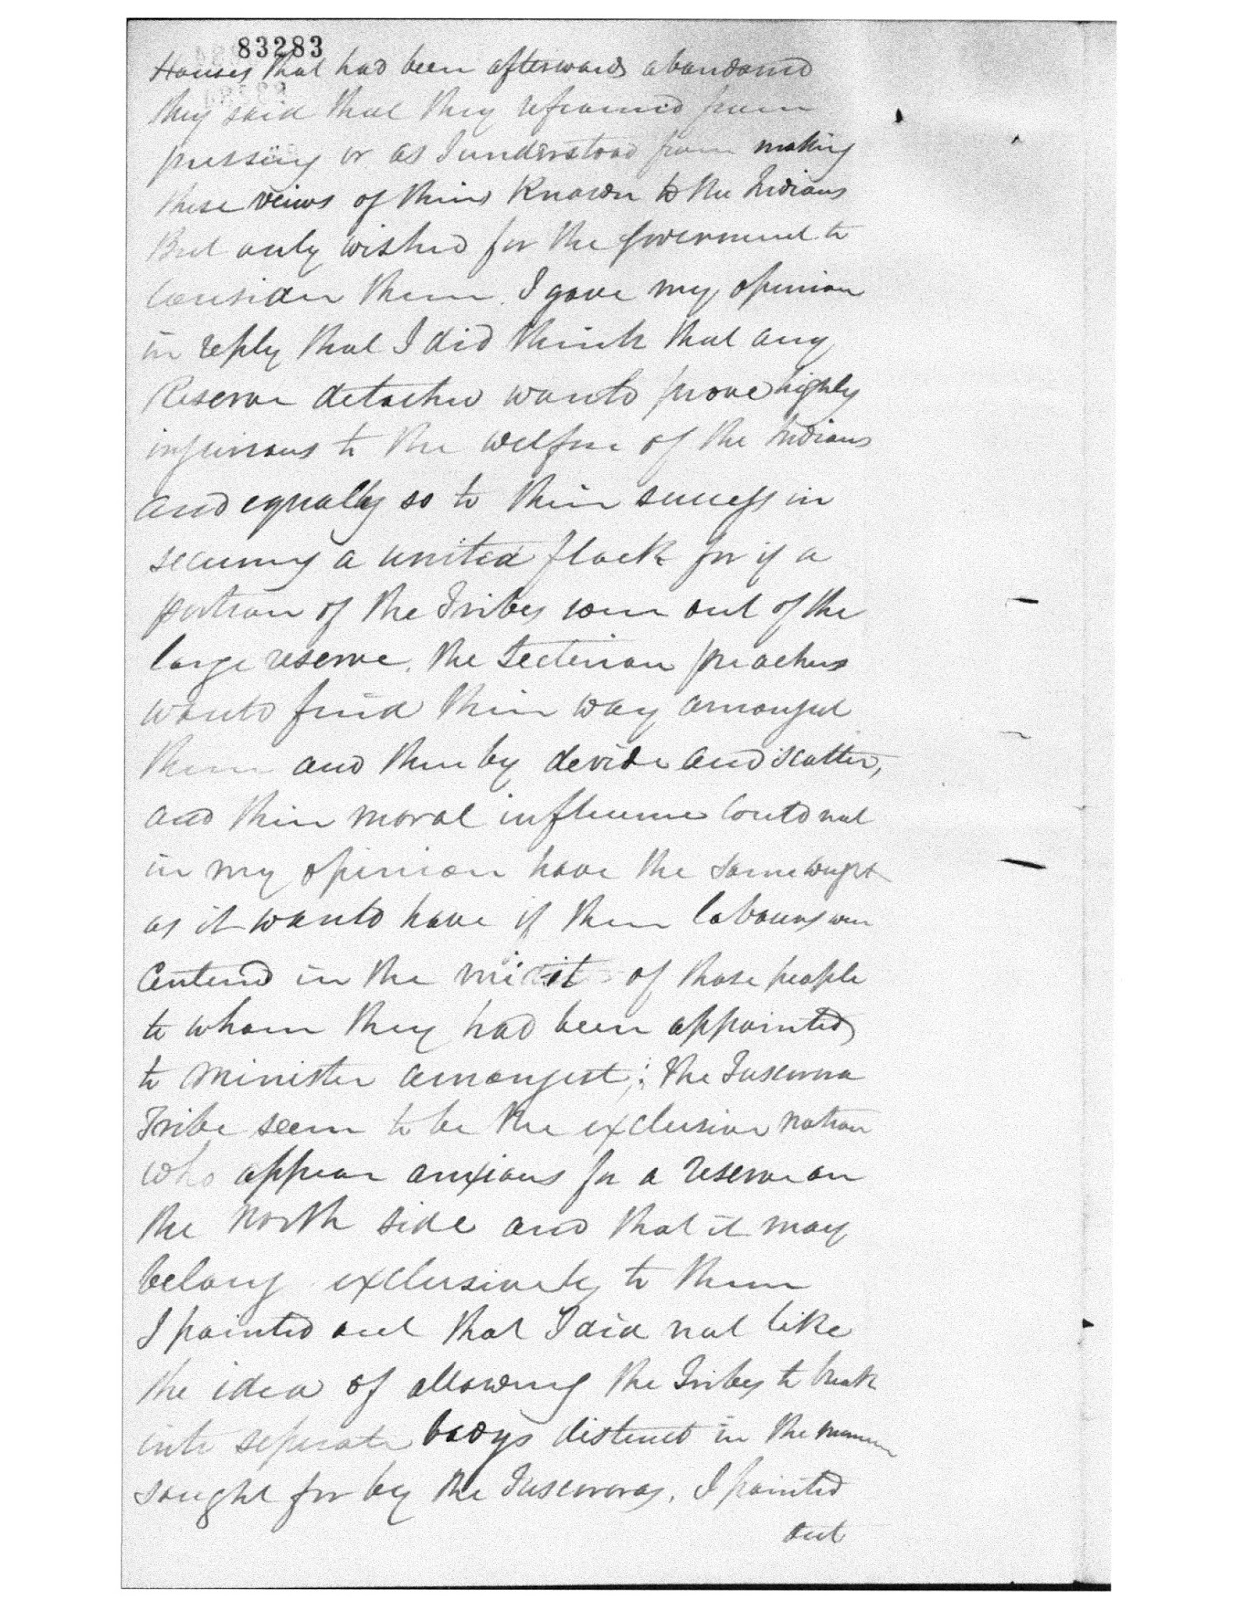 83283
Houses that had been afterwards abandoned
they said that they refrained from
pressing or as I understood from making
these views of theirs Known to the Indians
But only wished for the Government to
Consider them. I gave my opinion
in reply that I did think that any
Reserve detached would prove highly
injurious to the welfare of the Indians
and equally so to their success in
securing a united flock for if a
portion of the Tribes were out of the
large reserve. the Secterian preachers
would find their way amongst
them and thereby devide and scatter,
and their moral influence Could not
in my opinion have the same weight
as it would have if their labours were
Centered in the midst of those people
to whom they had been appointed
to minister amongst; the Tuscarora
Tribe seem to be the exclusive nation
who appear anxious for a reserve on
the North side and that it may
belong exclusively to them
I pointed out that I did not like
the idea of allowing the Tribes to break
into seperate bodys distinct in the manner
sought for by the Tuscaroras. I pointed
out